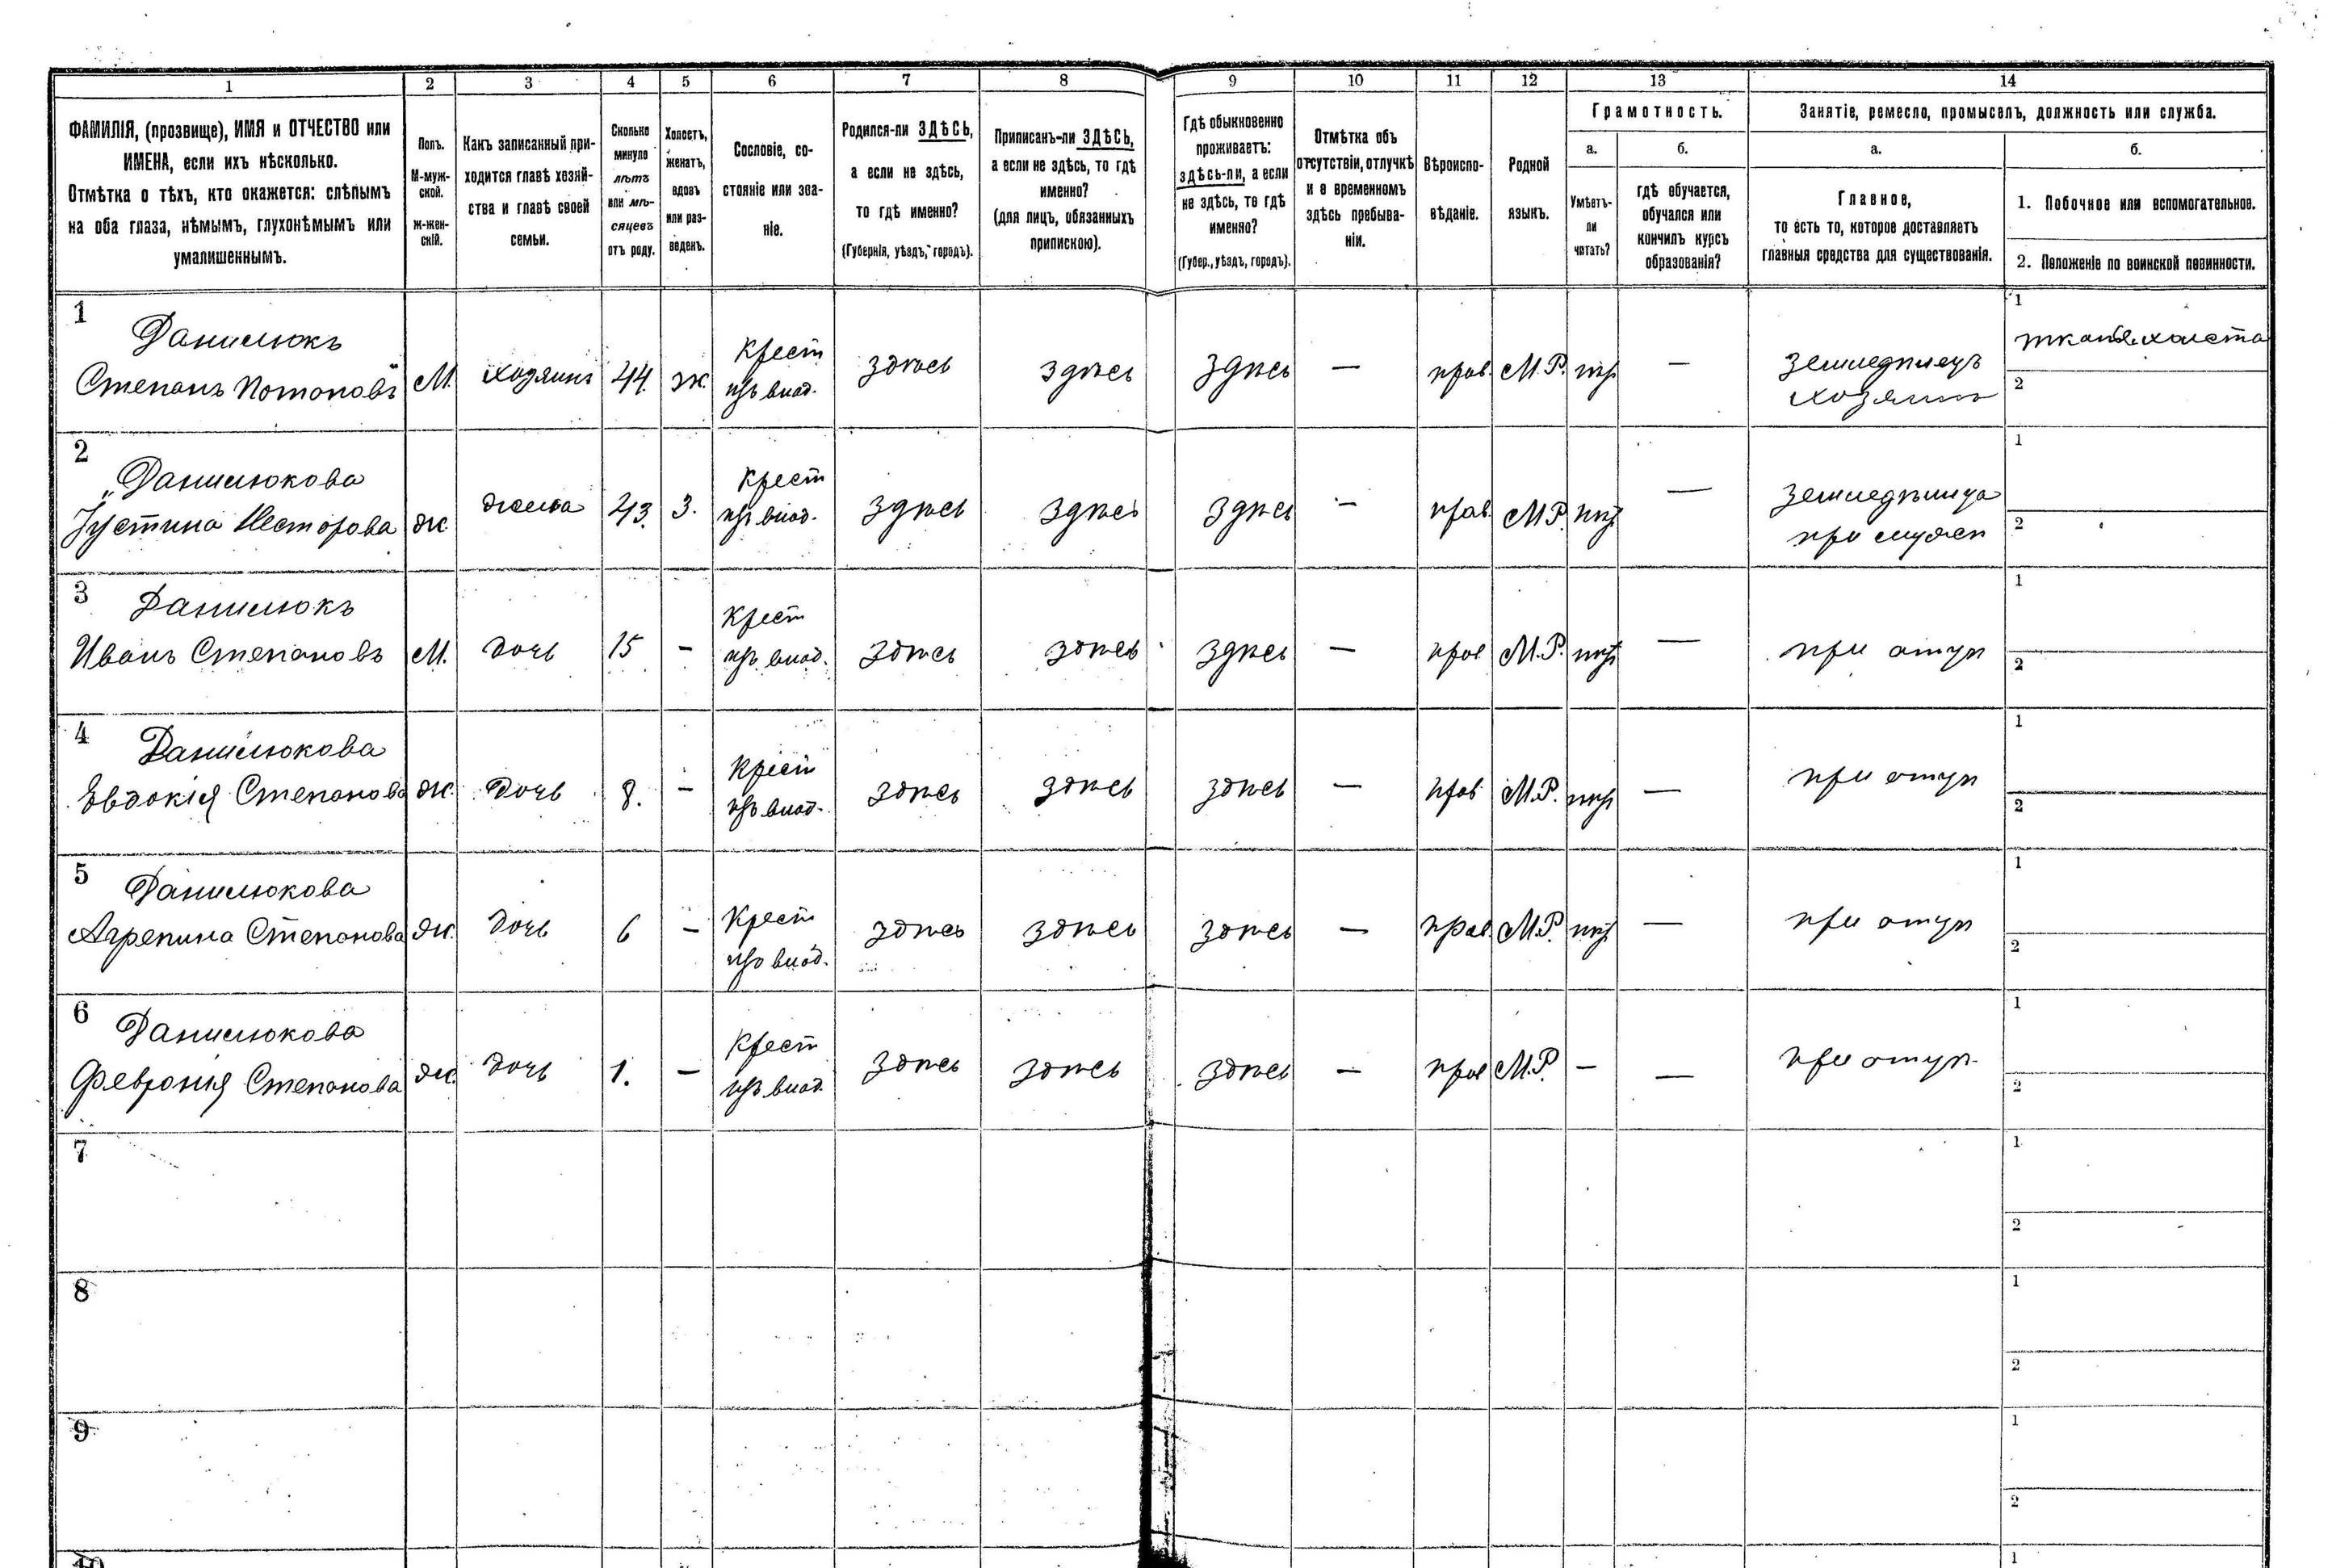 1 2 3 4 5 6 7 8 9 10 11 12 13 14
ФАМИЛІЯ, (прозвище), ИМЯ и ОТЧЕСТВО или
ИМЕНА, если ихъ нѣсколько.
Отмѣтка о тѣхъ, кто окажется: слѣпымъ
на оба глаза, нѣмымъ, глухонѣмымъ или
умалишеннымъ.
Полъ.
М-муж-
ской.
Ж-жен-
скій.
Какъ записанный при-
ходится главѣ хозяй-
ства и главѣ своей
семьи.
Сколько
минуло
лѣтъ
или мѣ-
сяцевъ
отъ роду.
Холостъ,
женатъ,
вдовъ
или раз-
веденъ.
Сословіе, со-
стояніе или зва-
ніе.
Родился-ли ЗДѢСЬ,
а если не здѣсь,
то гдѣ именно?
(Губернія, уѣздъ, городъ).
Приписанъ-ли ЗДѢСЬ,
а если не здѣсь, то гдѣ
именно?
(для лицъ, обязанныхъ
припискою).
Гдѣ обыкновенно
проживаетъ:
здѣсь-ли, а если
не здѣсь, то гдѣ
именно?
(Губер., уѣздъ, городъ).
Отмѣтка объ
отсутствіи, отлучкѣ
и о временномъ
здѣсь пребыва-
ніи.
Вѣроиспо-
вѣданіе.
Родной
языкъ.
Грамотность.
а.
Умѣетъ-
ли
читать?
б.
гдѣ обучается,
обучался или
кончилъ курсъ
образованія?
Занятіе, ремесло, промыселъ, должность или служба.
а.
Главное,
то есть то, которое доставляетъ
главныя средства для существованія.
б.
1. Побочное или вспомогательное.
2. Положеніе по воинской повинности.
1
Данилюкъ
Степанъ Потаповъ М. хозяинъ 44. ж. Крест здѣсь здѣсь здѣсь — прав. М.Р. — земледѣлецъ
изъ влад. хозяинъ
1
2
2
Данилюкова
Іустина Несторова ж жена 43. З. Крест здѣсь здѣсь здѣсь — прав. М.Р. —
изъ влад.
1
2
3
Данилюкъ
Иванъ Степановъ М. дочь 15 - Крест здѣсь здѣсь здѣсь — прав М.Р. — при отцѣ
изъ влад.
1
2
4
Данилюкова
Евдокія Степанова ж. дочь 8. - Крест здѣсь здѣсь здѣсь — прав М.Р. — при отцѣ
изъ влад.
1
2
5
Данилюкова
Агрепина Степанова ж. дочь 6 - Крест здѣсь здѣсь здѣсь — прав. М.Р. — при отцѣ
изъ влад.
1
2
6
Данилюкова
Февронія Степанова ж. дочь 1. — Крест здѣсь здѣсь здѣсь — прав М.Р. — — при отцѣ
изъ влад.
1
2
7
1
2
8
1
2
9
1
2
10
1